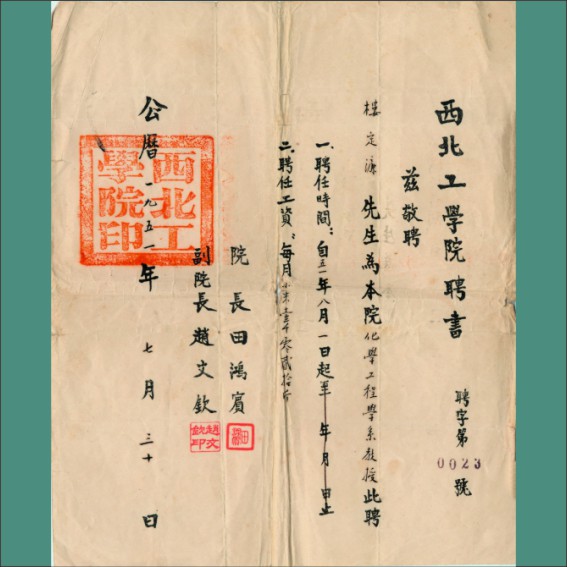 西北工學院聘書
聘字第
0023
號
茲敬聘
樓定源先生為本院化學工程學系教授此聘
一、聘任時間：自五一年八月一日起至 年 月 日止
二、聘任工資：每月小米壹千零貳拾斤
院長田鴻賓
田
副院長趙文欽
趙文欽印
西北工學院印
公曆一九五一年七月三十日